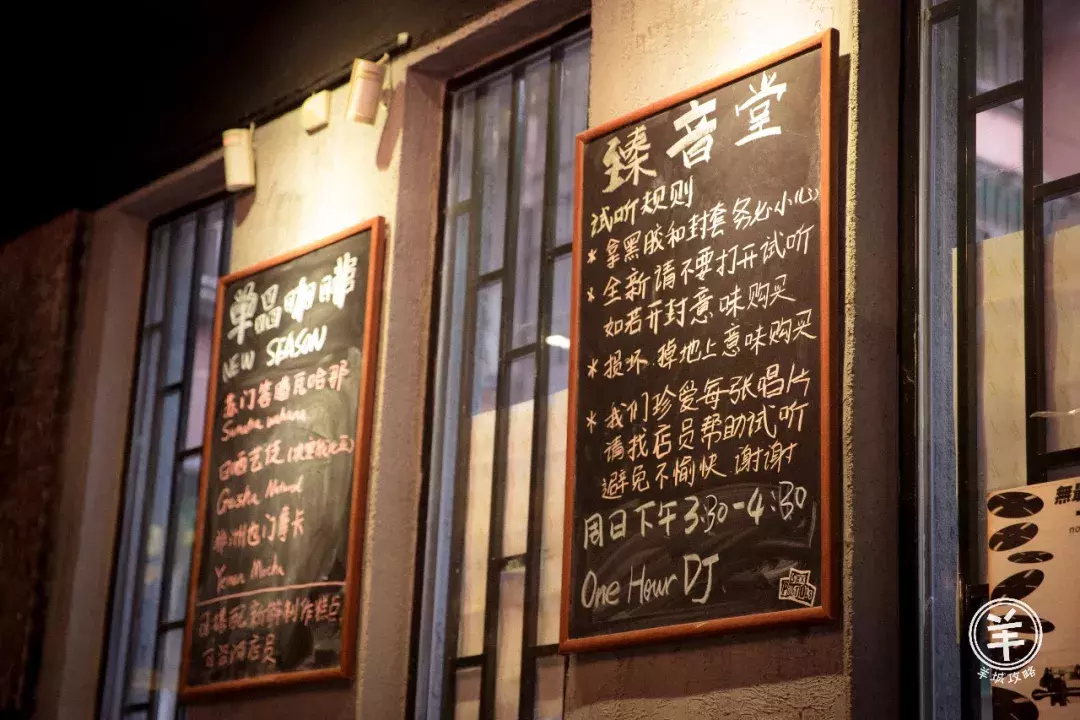 单品咖啡
NEW SEASON
苏门答腊瓦哈那
日晒艺伎
非洲也门摩卡
Yemen Mocha
可搭配新鲜制作糕点
可咨询店员
臻音堂
试听规则
* 拿黑胶和封套务必小心
* 全新请不要打开试听
如若开封意味购买
* 损坏.掉地上意味购买
* 我们珍爱每张唱片
请找店员帮助试听
避免不愉快.谢谢
周日下午3:30-4:30
One Hour DJ
無
no
羊
羊城攻略